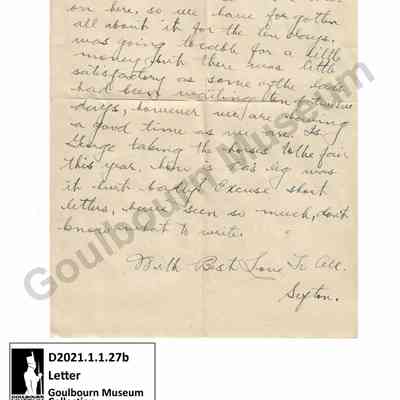 on here, so we have forgotten
all about it for the ten days.
was going to cable for a little
money but there was little
satisfactory as some of the lads
had been waiting ten to twelve
days, however we are having
a good time as we are. Is
George taking the horses to the fair
this year. how is leg was
it hurt badly. Excuse short
letters, have seen so much, don't
know what to write.
With Best Love To All.
Sefton.
Goulbourn Museum
D2021.1.1.27b
Letter
Goulbourn Museum
Collection